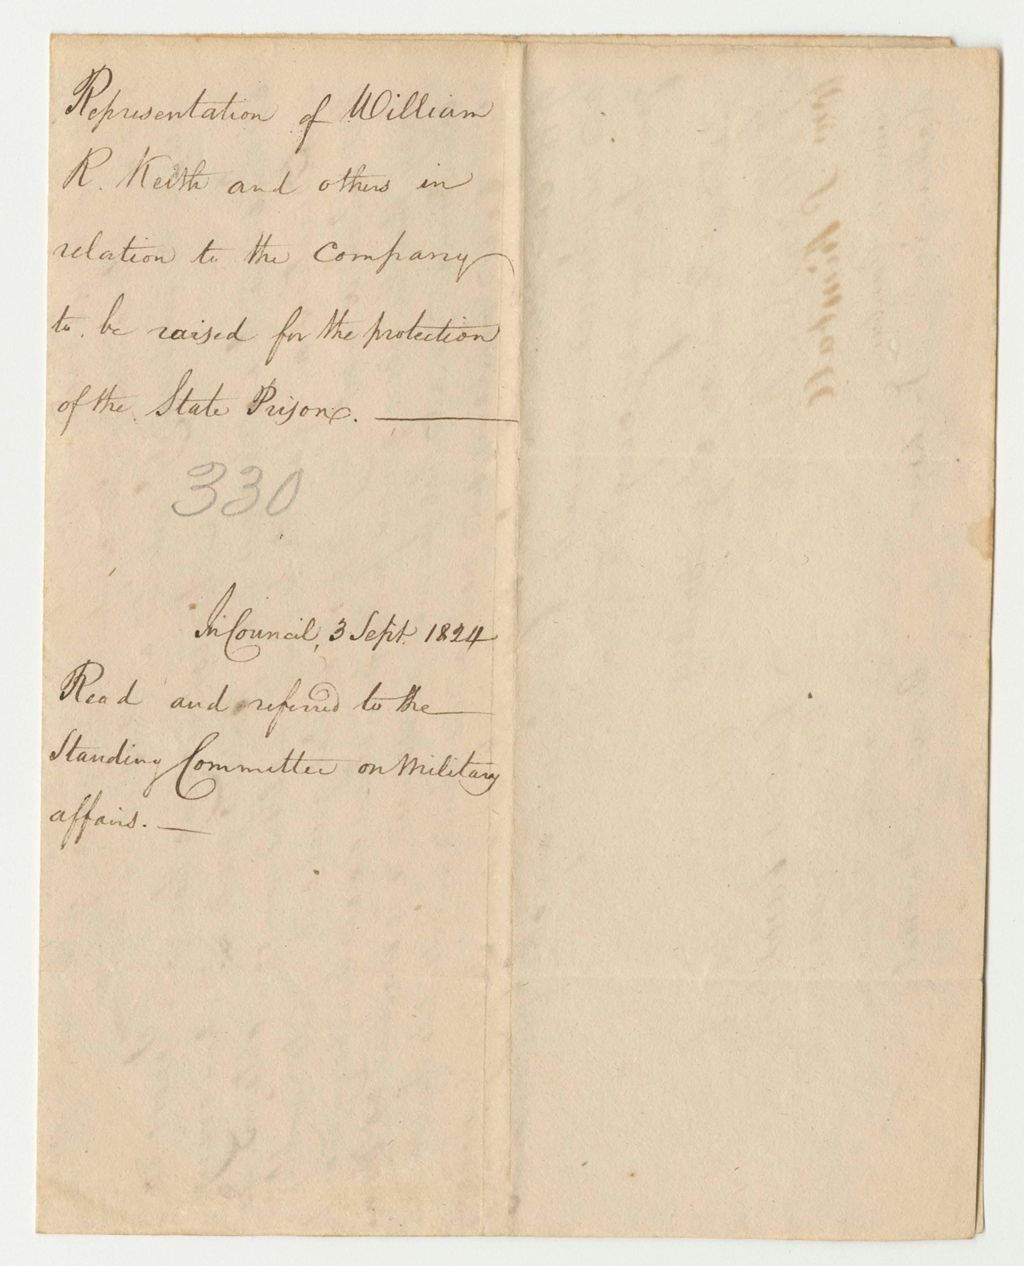 Representation of William
R. Keith and others in
relation to the Company
to be raised for the protection
of the State Prison.
330
In Council, 3 Sept. 1824
Read and referred to the
Standing Committee on Military
affairs.